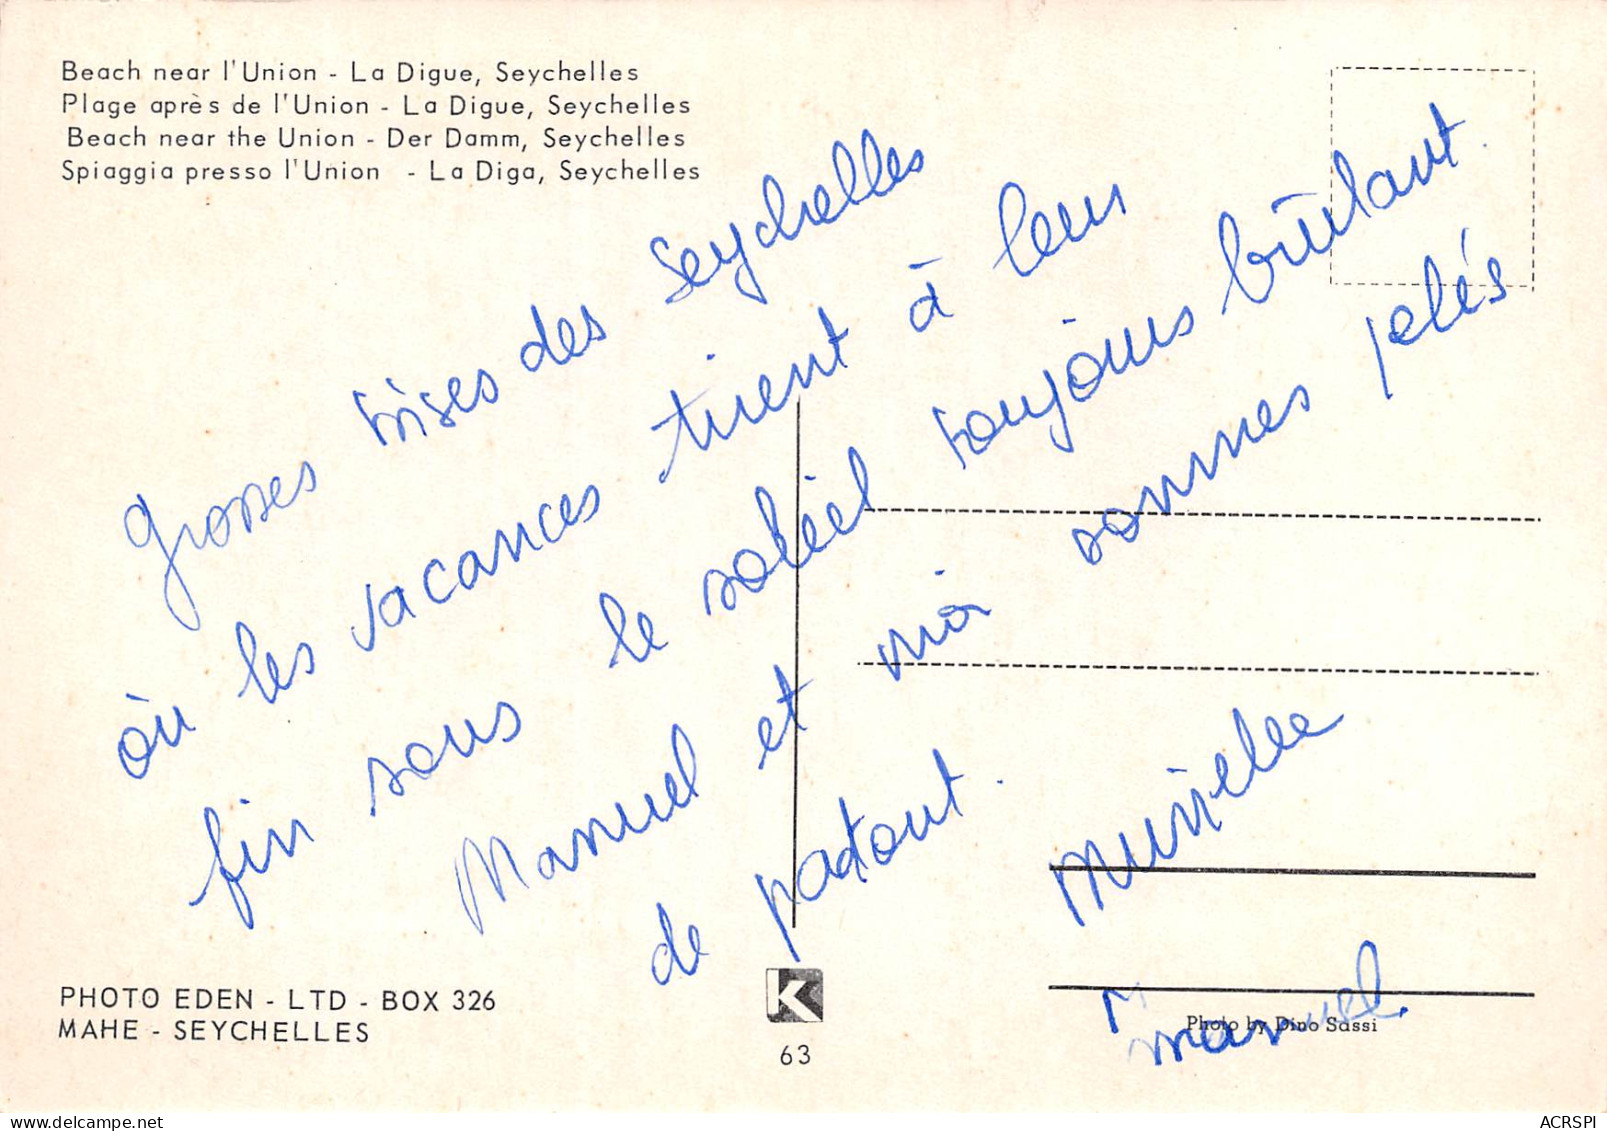 Beach near l'Union - La Digue, Seychelles
Plage après de l'Union - La Digue, Seychelles
Beach near the Union - Der Damm, Seychelles
Spiaggia presso l'Union - La Diga, Seychelles
Grosses bises des Seychelles
où les vacances tirent à leur
fin sous le soleil toujours brûlant.
Manuel et moi sommes pelés
de partout.
Murielle
Manuel
PHOTO EDEN - LTD - BOX 326
MAHE - SEYCHELLES
K
63
Photo by Dino Sassi
ACRSPI
delcampe.net